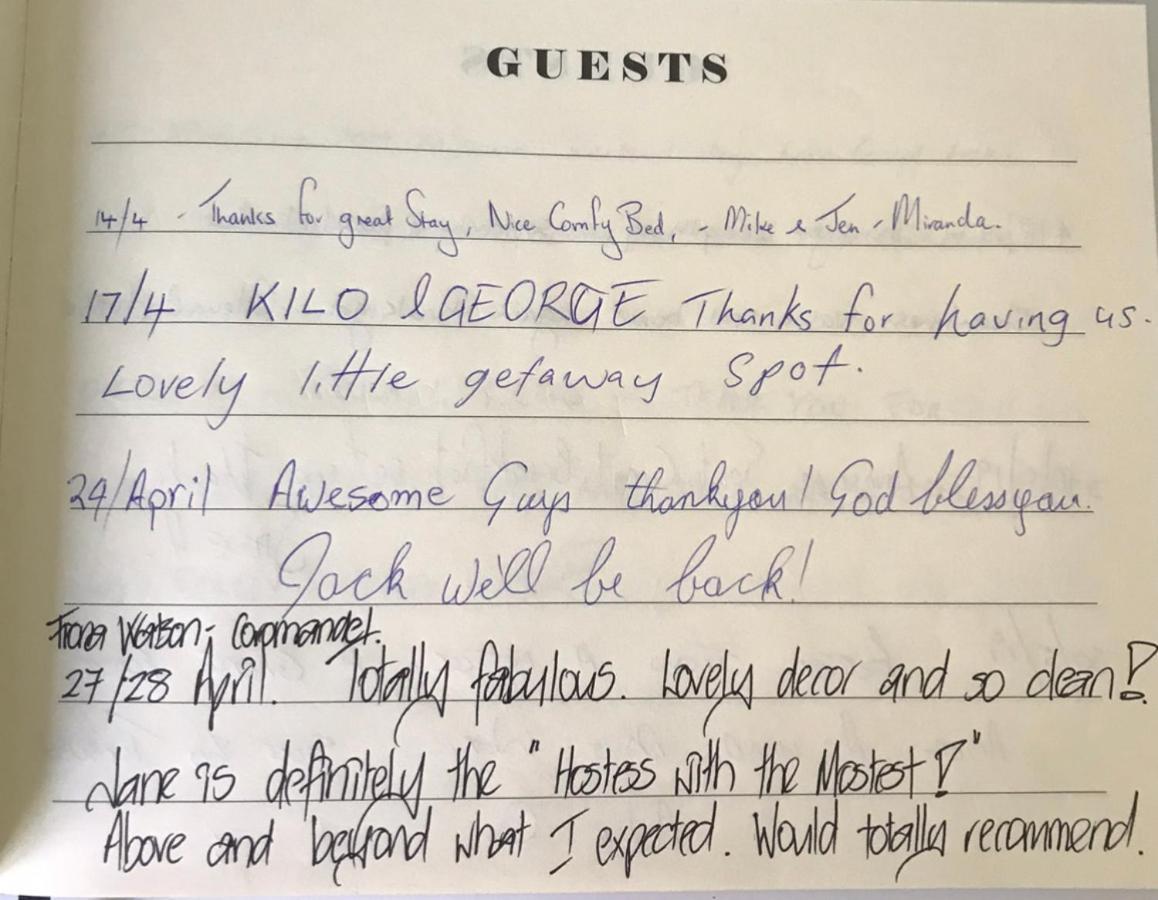 GUESTS
14/4 - Thanks for great Stay, Nice Comfy Bed, - Mike & Jen - Miranda.
17/4 KILO & GEORGE Thanks for having us.
Lovely little getaway spot.
24/April Awesome Guys thankyou! God blessyou.
Jack we'll be back!
Fiona Watson - Coromandel.
27/28 April. Totally fabulous. Lovely decor and so clean!
Jane is definitely the "Hostess with the Mostest!"
Above and beyond what I expected. Would totally recommend.